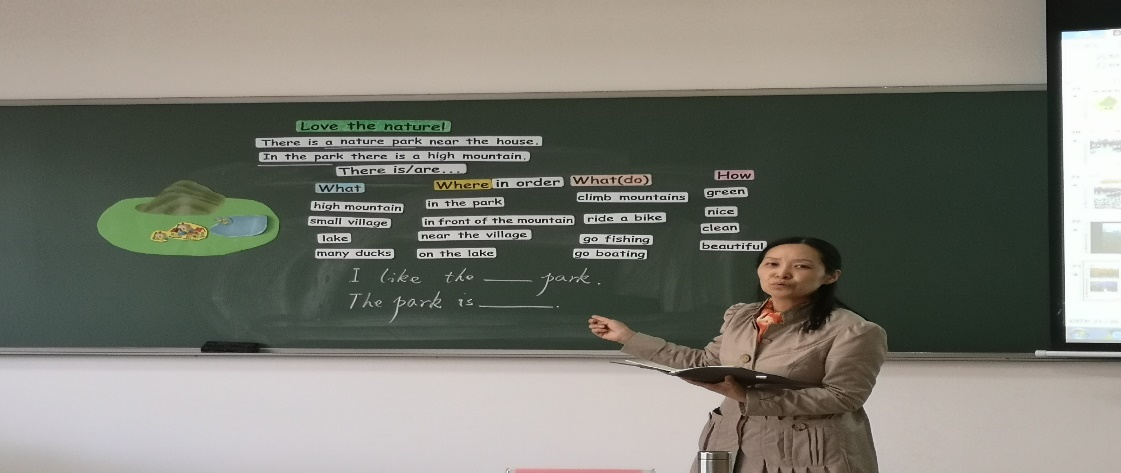 Love the nature!
There is a nature park near the house.
In the park there is a high mountain.
There is/are...
What Where in order What(do) How
high mountain in the park climb mountains green
small village in front of the mountain ride a bike nice
lake near the village go fishing clean
many ducks on the lake go boating beautiful
I like the ____ park.
The park is ______.